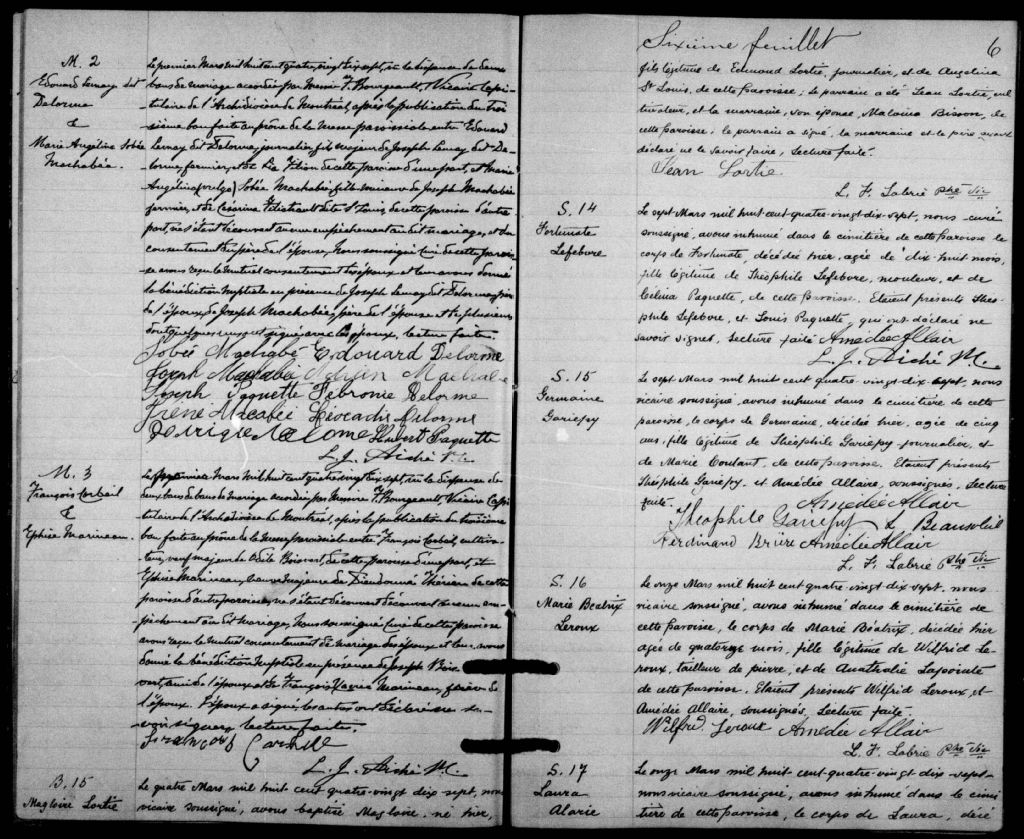 M. 2
Edouard Lemay dit
Delorme
&
Marie Angélina Sobée
Machabée.
Le premier Mars mil huit cent quatre-vingt dix sept, vu la dispense de deux
bans de mariage accordée par Messire F. Bourgeault, Vicaire Capi-
tulaire de l'Archidiocèse de Montréal, après la publication du troi-
sième ban faite au prône de la Messe paroissiale entre Edouard
Lemay dit Delorme, journalier, fils majeur de Joseph Lemay dit De-
lorme, fermier, et de Filion de cette paroisse d'une part, et Marie
Angélina Sobée Machabée, fille mineure de Joseph Machabée
fermier, et de Césarine Filiatrault dite St Louis, de cette paroisse d'autre
part, ne s'étant découvert aucun empêchement au dit mariage, et du
consentement du père de l'épouse, Nous soussigné Curé de cette parois-
se avons reçu le mutuel consentement des époux et leur avons donné
la bénédiction nuptiale en présence de Joseph Lemay dit Delorme père
de l'époux, de Joseph Machabée, père de l'épouse et de plusieurs
dont quelques uns ont signé avec les époux. Lecture faite.
Sobée Machabé Edouard Delorme
Joseph Machabée Machab
Joseph Paquette Febronie Delorme
Irène Macabei Léocadie Delorme
Delorme Hubert Paquette
L. J. Piché Ptr. C.
M. 3
François Corbeil
&
Ephise Marineau.
Le premier Mars mil huit cent quatre vingt dix sept, vu la dispense de
deux bans de mariage accordée par Messire F. Bourgeault, Vicaire Capi-
tulaire de l'Archidiocèse de Montréal, après la publication du troisième
ban faite au prône de la Messe paroissiale entre François Corbeil, cultiva-
teur, veuf majeur de Odile Boisvert, de cette paroisse d'une part, et
Ephise Marineau, veuve majeure de Dieudonné Thérien de cette
paroisse d'autre part, ne s'étant découvert aucun em-
pêchement au dit mariage, Nous soussigné Curé de cette paroisse
avons reçu le mutuel consentement de mariage des époux et leur avons
donné la bénédiction nuptiale en présence de Joseph Bois-
vert, ami de l'époux et de François Xavier Marineau, frère de
l'épouse. L'époux a signé, les autres ont déclaré ne sa-
voir signer, lecture faite.
François Corbeille
L. J. Piché Ptr. C.
B. 15
Magloire Lortie
Le quatre Mars mil huit cent quatre-vingt dix sept, nous
vicaire soussigné, avons baptisé Magloire, né hier,
Sixième feuillet
6
fils légitime de Edmond Lortie, journalier, et de Angelina
St Louis, de cette paroisse; le parrain a été Jean Lortie, cul
tivateur, et la marraine, son épouse Malvina Bisson, de
cette paroisse; le parrain a signé, la marraine et le père ayant
déclaré ne le savoir faire, Lecture faite.
Jean Lortie.
L. F. Labrie Ptre Vic
S. 14
Fortunate
Lefebvre
Le sept Mars mil huit cent-quatre-vingt dix-sept, nous curé
soussigné, avons inhumé dans le cimitière de cette Paroisse le
corps de Fortunate, décédée hier, agée de dix-huit mois,
fille légitime de Théophile Lefebvre, mouleur, et de
Célina Paquette, de cette Paroisse. Etaient présents Théo-
phile Lefebvre, et Louis Paquette, qui ont déclaré ne
savoir signer, Lecture faite Amédée Allair
L. J. Piché Ptr. C.
S. 15
Germaine
Gariépy
Le sept Mars mil huit cent quatre-vingt-dix sept, nous
vicaire soussigné, avons inhumé dans le cimitière de cette
paroisse, le corps de Germaine, décédée hier, agée de cinq
ans, fille légitime de Théophile Gariépy journalier, et
de Marie Coutant, de cette paroisse. Etaient présents
Théophile Gariépy, et Amédée Allaire, soussignés, Lecture
faite.
Amédée Allair
Théophile Garrépy L. Beausoleil
Ferdinand Brière Amédée Allair
L. F. Labrie Ptre Vic
S. 16
Marie Beatrix
Leroux
Le onze Mars mil huit cent quatre-vingt dix sept, nous
vicaire soussigné, avons inhumé dans le cimitière de
cette Paroisse, le corps de Marie Béatrix, décédée hier
agée de quatorze mois, fille légitime de Wilfrid Le-
roux, tailleur de pierre, et de Anathalie Lapointe
de cette paroisse. Etaient présents Wilfrid Leroux, et
Amédée Allaire, soussignés, Lecture faite.
Wilfrid Leroux Amédée Allair
L. F. Labrie Ptre Vic
S. 17
Laura
Alarie
Le onze Mars mil huit cent-quatre-vingt dix-sept-
nous vicaire soussigné, avons inhumé dans le cimi
tière de cette paroisse, le corps de Laura, décé